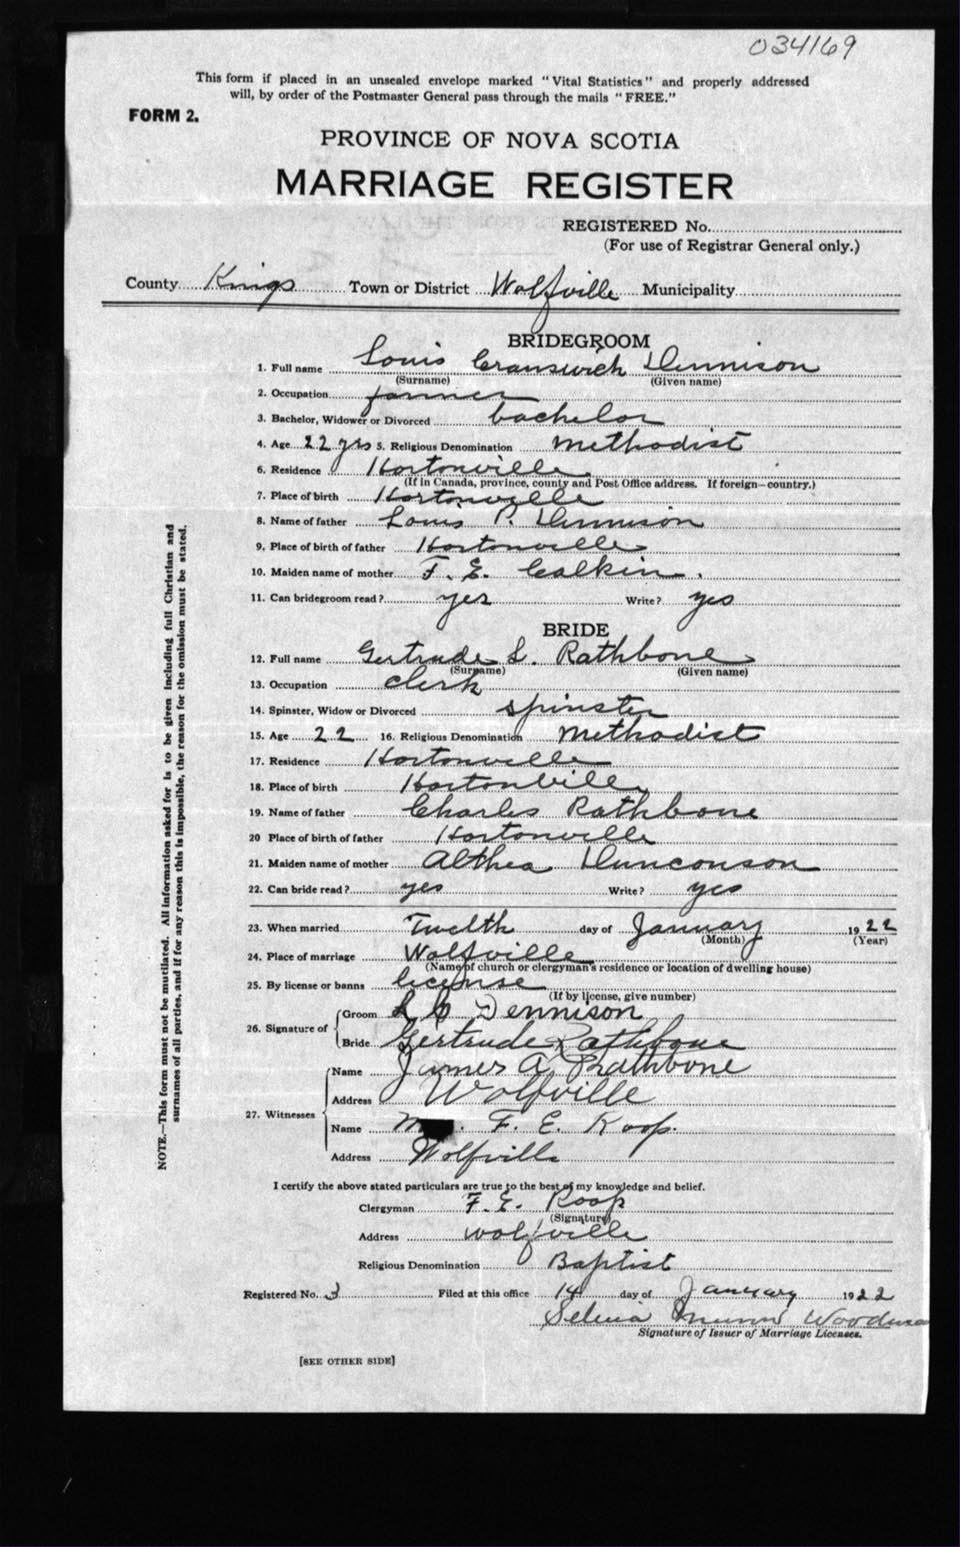 034169
This form if placed in an unsealed envelope marked "Vital Statistics" and properly addressed
will, by order of the Postmaster General pass through the mails "FREE."
FORM 2.
PROVINCE OF NOVA SCOTIA
MARRIAGE REGISTER
REGISTERED No.
(For use of Registrar General only.)
County Kings Town or District Wolfville Municipality
BRIDEGROOM
1. Full name Louis Cranswich Dennison
(Surname) (Given name)
2. Occupation farmer
3. Bachelor, Widower or Divorced bachelor
4. Age 22 yrs 5. Religious Denomination Methodist
6. Residence Hortonville
(If in Canada, province, county and Post Office address. If foreign—country.)
7. Place of birth Hortonville
8. Name of father Louis P. Dennison
9. Place of birth of father Hortonville
10. Maiden name of mother F. E. Calkin.
11. Can bridegroom read? yes Write? yes
BRIDE
12. Full name Gertrude L. Rathbone
(Surname) (Given name)
13. Occupation clerk
14. Spinster, Widow or Divorced spinster
15. Age 22 16. Religious Denomination Methodist
17. Residence Hortonville
18. Place of birth Hortonville
19. Name of father Charles Rathbone
20 Place of birth of father Hortonville
21. Maiden name of mother Althea Dunconson
22. Can bride read? yes Write? yes
23. When married Twelth day of January 1922
(Month) (Year)
24. Place of marriage Wolfville
(Name of church or clergyman's residence or location of dwelling house)
25. By license or banns license
(If by license, give number)
26. Signature of Groom L C Dennison
Bride Gertrude Rathbone
27. Witnesses Name James A. Rathbone
Address Wolfville
Name F. E. Roop.
Address Wolfville
I certify the above stated particulars are true to the best of my knowledge and belief.
Clergyman F. E. Roop
(Signature)
Address Wolfville
Religious Denomination Baptist
Registered No. 3 Filed at this office 14 day of January 1922
Signature of Issuer of Marriage Licenses.
[SEE OTHER SIDE]
NOTE.—This form must not be mutilated. All information asked for is to be given including full Christian and
surnames of all parties, and if for any reason this is impossible, the reason for the omission must be stated.